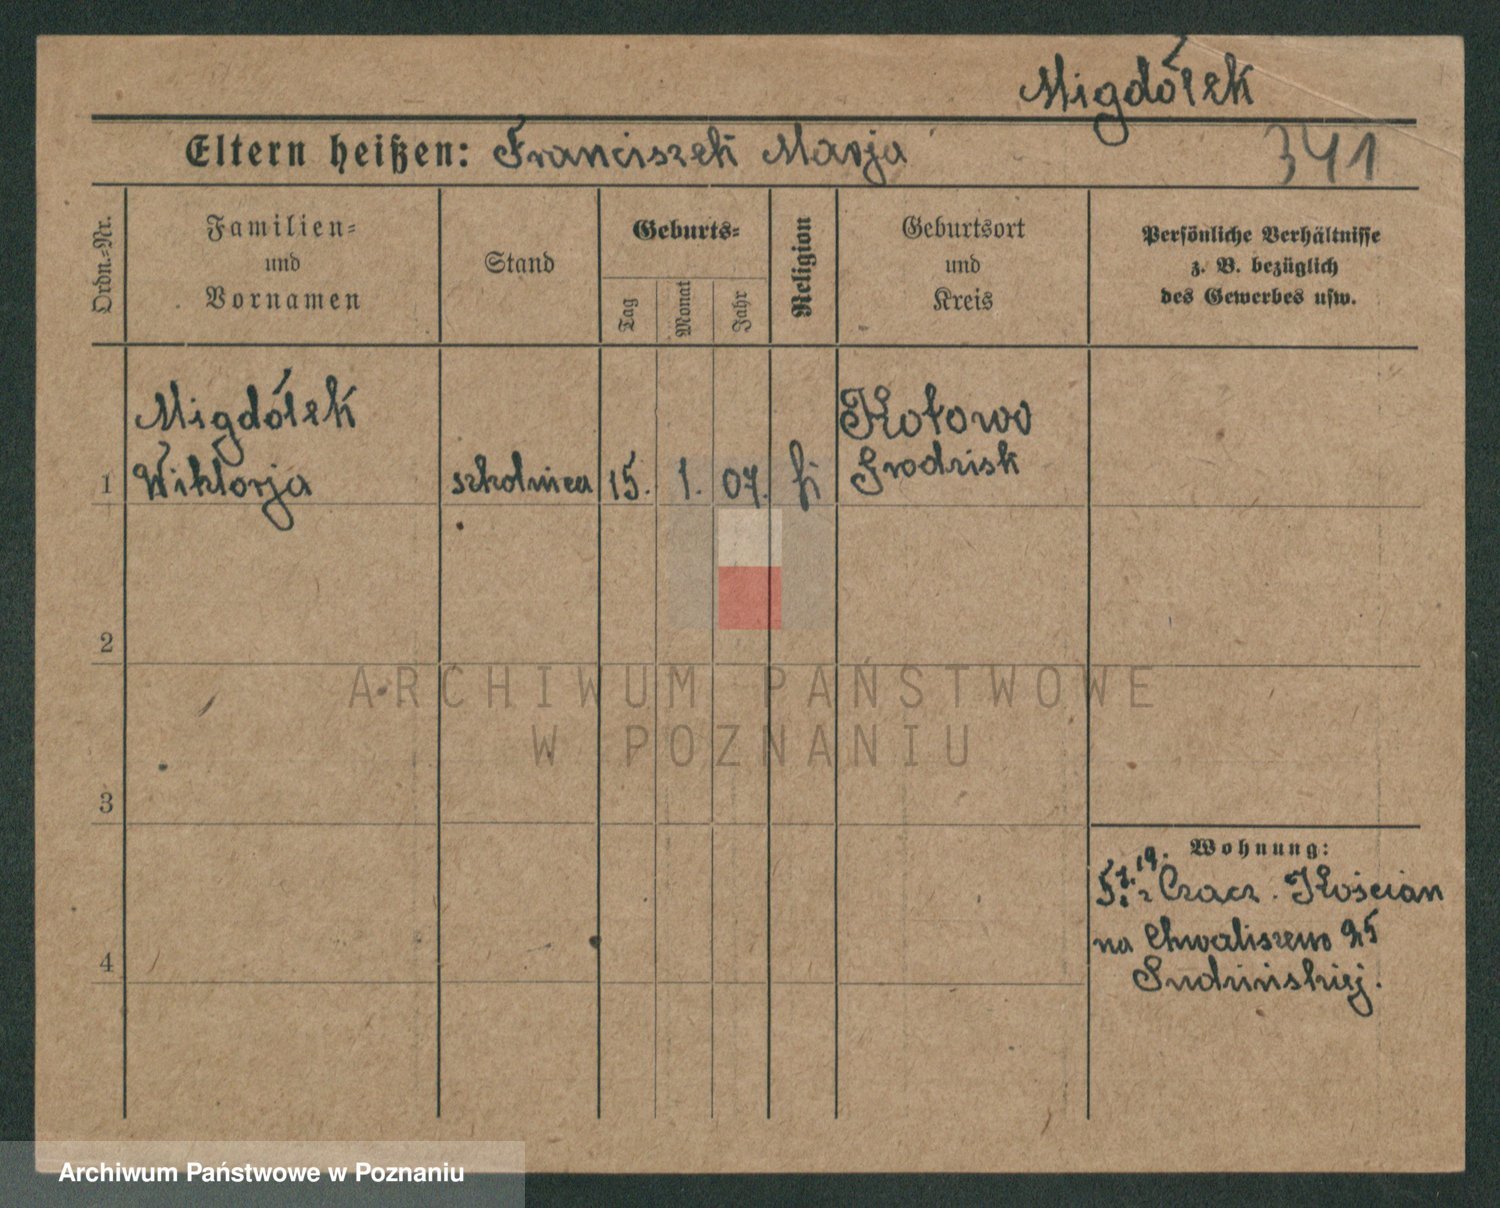 Migdółek
Eltern heißen: Franciszek Marja
341
Ordn.-Nr.
Familien-
und
Vornamen
Stand
Geburts-
Tag
Monat
Jahr
Religion
Geburtsort
und
Kreis
Persönliche Verhältnisse
z. B. bezüglich
des Gewerbes usw.
Migdółek
Kotowo
1 Wiktorja szkolnica 15. 1. 07. k Grodzisk
2
ARCHIWUM PAŃSTWOWE
W POZNANIU
3
Wohnung:
19. z Czacz. Kościan
na Chwaliszewo 25
4
Archiwum Państwowe w Poznaniu